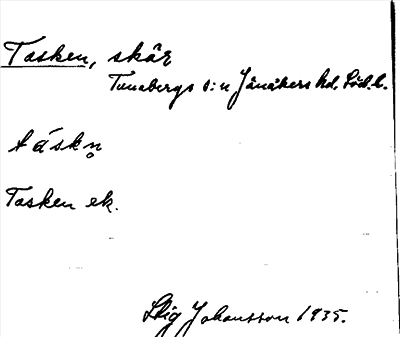 Tasken, skär
Tunabergs s:n Jönåkers hd. Söd. l.
táskn̥
Tasken ek.
Stig Johansson 1935.